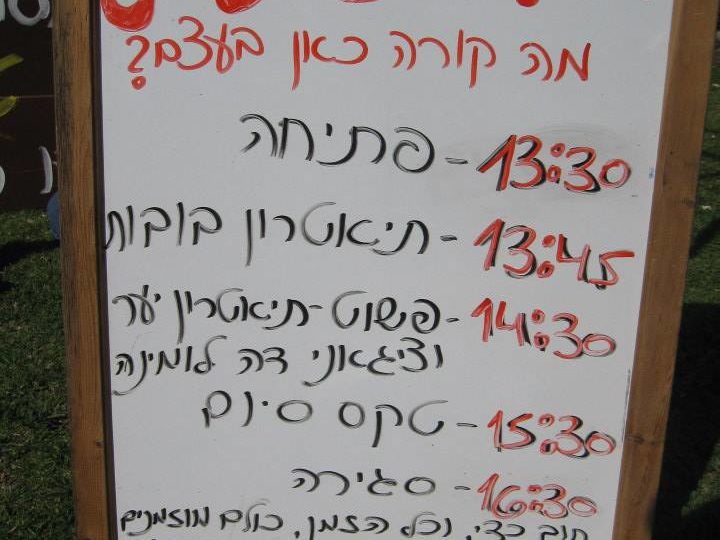 מה קורה כאן בעצם?
13:30 - פתיחה
13:45 - תיאטרון בובות
14:30 - פשוט-תיאטרון יער
וציגאני דה לומינה
15:30 - טקס סיום
16:30 - סגירה
חוב כדי, וכל הזמן, כולם מוזמנים